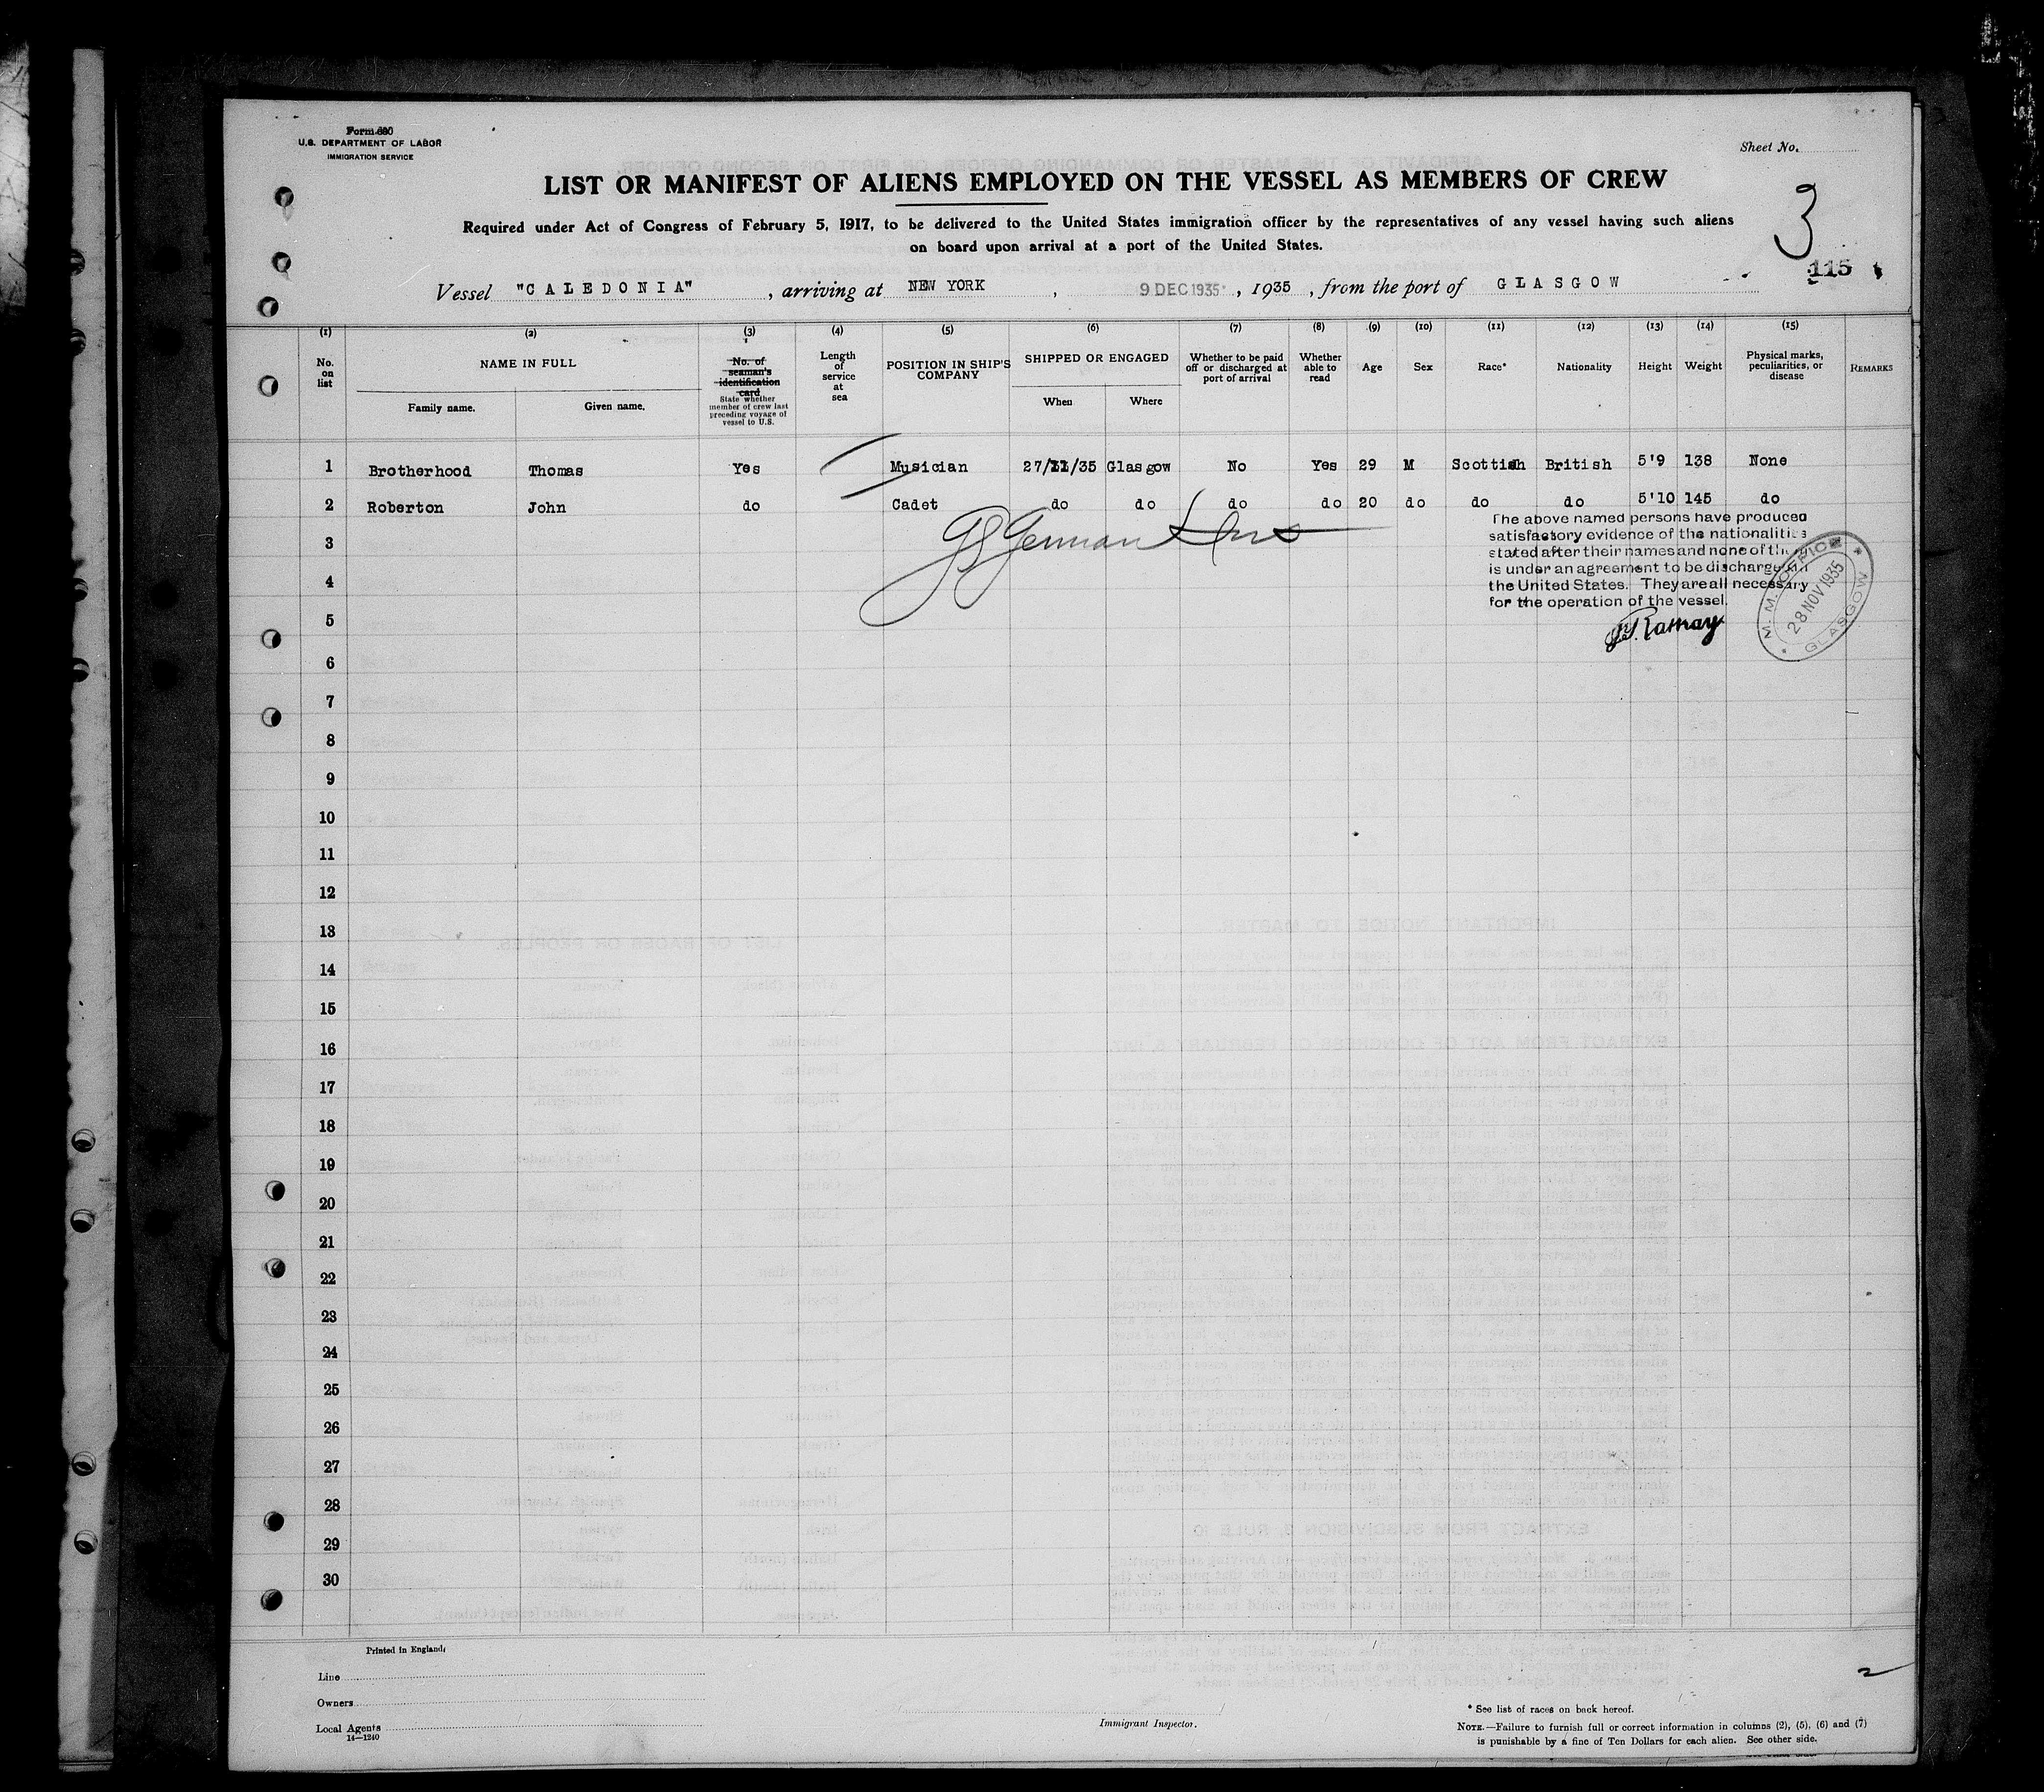 Form 680
U.S. DEPARTMENT OF LABOR
IMMIGRATION SERVICE
Sheet No.
LIST OR MANIFEST OF ALIENS EMPLOYED ON THE VESSEL AS MEMBERS OF CREW
3
Required under Act of Congress of February 5, 1917, to be delivered to the United States immigration officer by the representatives of any vessel having such aliens
on board upon arrival at a port of the United States.
115
Vessel "CALEDONIA", arriving at NEW YORK, 9 DEC 1935, 1935, from the port of GLASGOW
(1) (2) (3) (4) (5) (6) (7) (8) (9) (10) (11) (12) (13) (14) (15)
No. on list
NAME IN FULL
Family name. Given name.
No. of seaman's identification card
State whether member of crew last preceding voyage of vessel to U.S.
Length of service at sea
POSITION IN SHIP'S COMPANY
SHIPPED OR ENGAGED
When Where
Whether to be paid off or discharged at port of arrival
Whether able to read
Age
Sex
Race*
Nationality
Height
Weight
Physical marks, peculiarities, or disease
REMARKS
1 Brotherhood Thomas Yes Musician 27/11/35 Glasgow No Yes 29 M Scottish British 5'9 138 None
2 Roberton John do Cadet do do do do 20 do do do 5'10 145 do
The above named persons have produced
satisfactory evidence of the nationalities
stated after their names and none of them
is under an agreement to be discharged in
the United States. They are all necessary
for the operation of the vessel.
M. M. OFFICE
28 NOV 1935
GLASGOW
3
4
5
6
7
8
9
10
11
12
13
14
15
16
17
18
19
20
21
22
23
24
25
26
27
28
29
30
Printed in England.
Line
Owners
Local Agents
14—1240
Immigrant Inspector.
* See list of races on back hereof.
NOTE.—Failure to furnish full or correct information in columns (2), (5), (6) and (7)
is punishable by a fine of Ten Dollars for each alien. See other side.
2